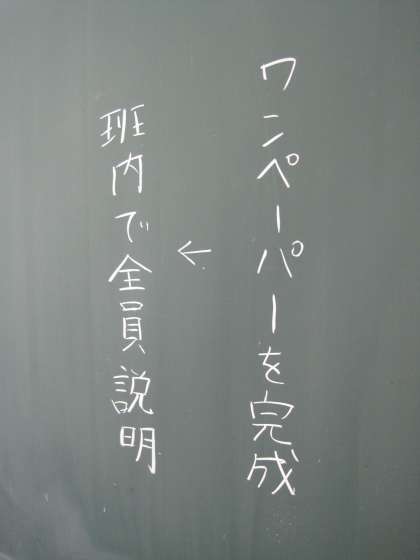 ワンペーパーを完成
←
班内で全員説明